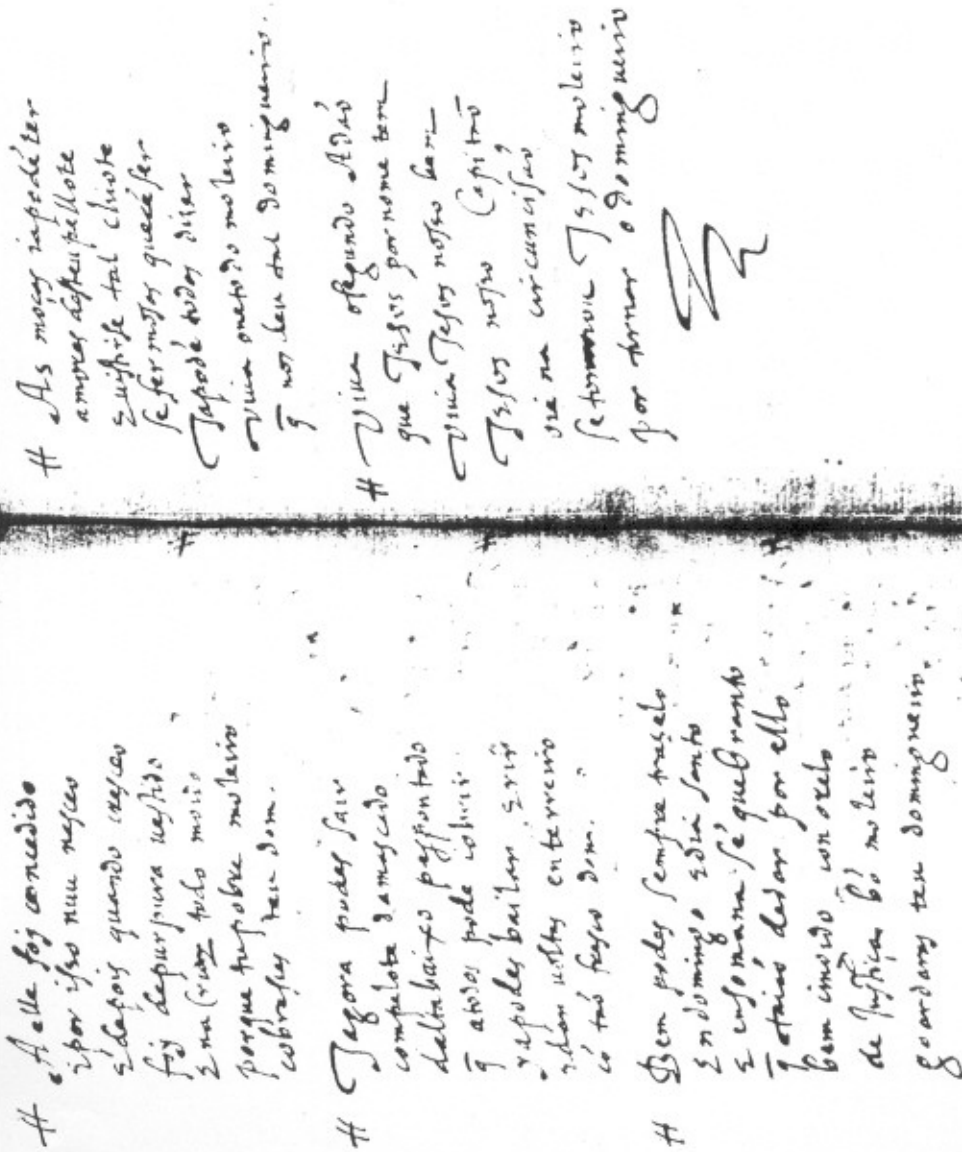 # A elle foy concedido
ẽ por isso nuu nasceo
E depois quando cresceo
foy de purpura vestido
E na cruz todo moido
porque tu pobre moleiro
cobrasses teu dom.
# Ja agora podes sair
com pelote damascado
dalto abaixo pespontado
q̃ a todos pode cobrir
ya podes bailar E rir
E dar voltas en terreiro
cõ teu fresco dom.
# Bem podes sempre trazelo
En domingo E dia santo
E en somana sẽ quebranto
q̃ te não dedar por ello
bem cinsido con orelo
de justiça bõ moleiro
goardaras teu domingueiro.
# As moças ia podẽ ter
amores a seu pellote
E vistirse tal chiote
se fermosas querẽ ser
Ja podẽ todos dizer
viva o neto do moleiro
q̃ nos deu tal domingueiro.
# Viva o segundo Adão
que Jesus por nome tem
Viva Jesus nosso bem
Jesus nosso Capitão
oie na circuncisaõ
se tornou Jesus moleiro
por tornar o domingueiro